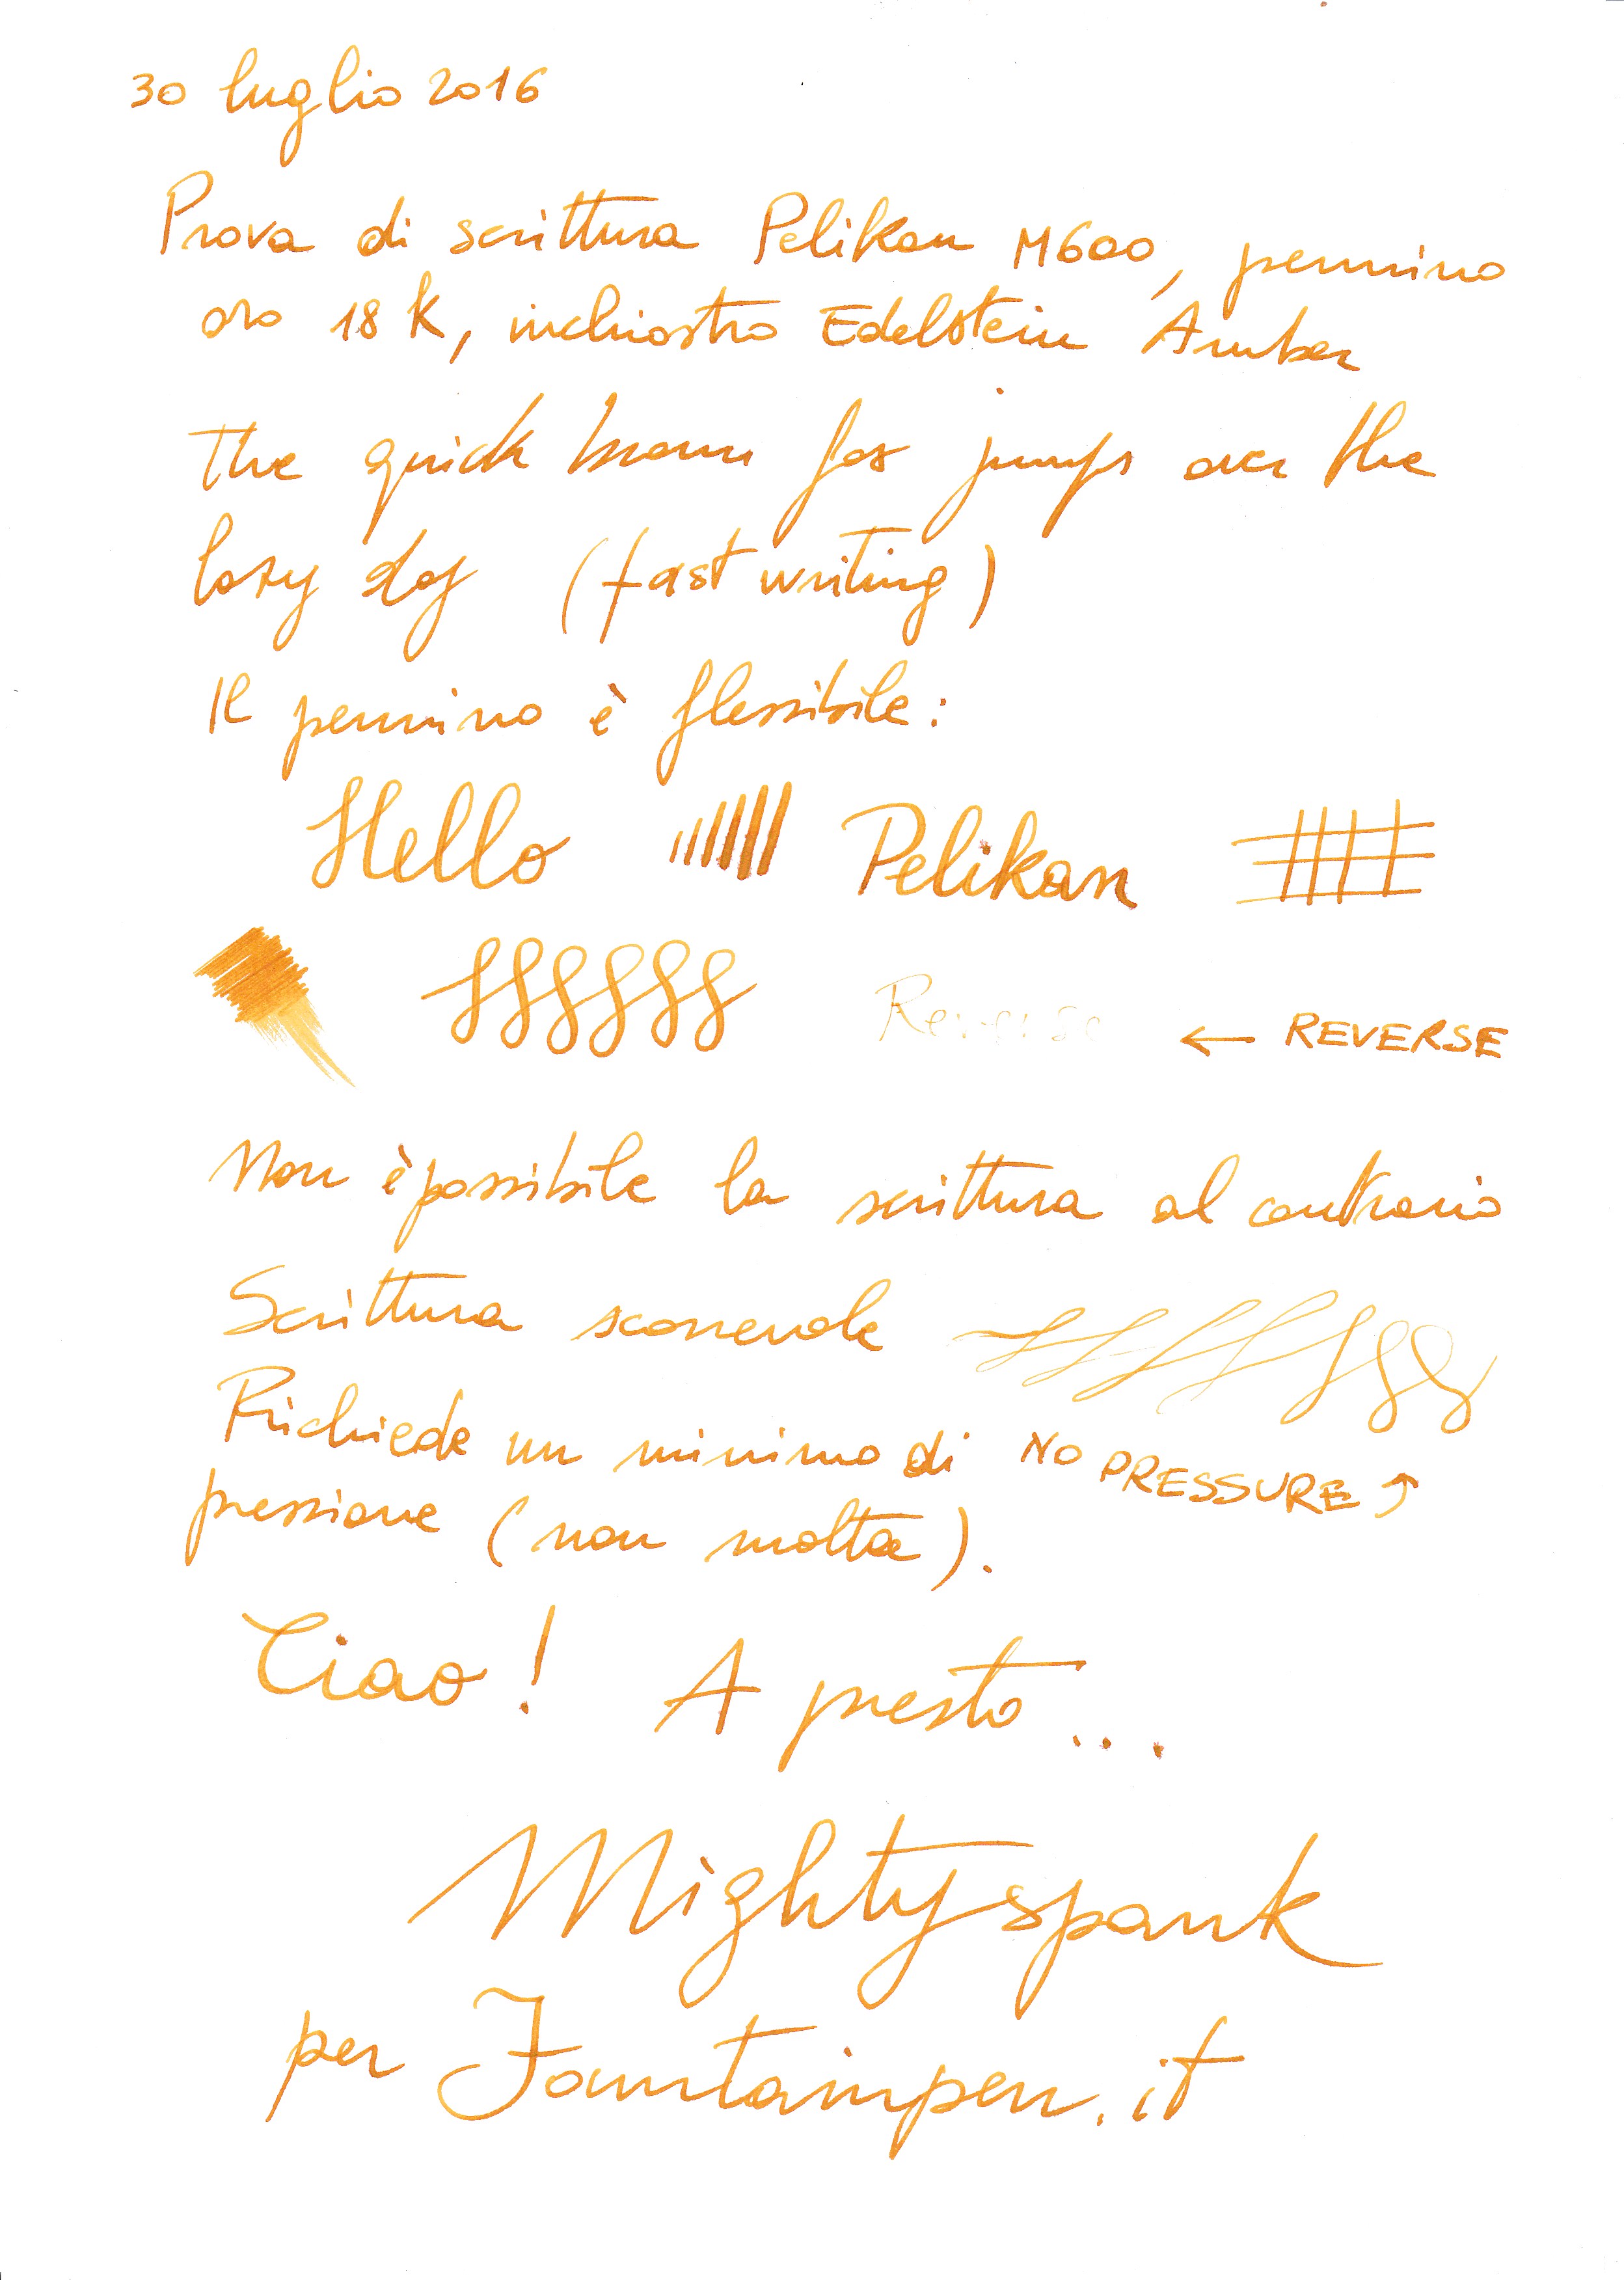 30 luglio 2016
Prova di scrittura Pelikan M600, pennino
oro 18 K, inchiostro Edelstein Amber
The quick brown fox jumps over the
lazy dog (fast writing)
Il pennino è flessibile:
Hello Pelikan
Reverse ← REVERSE
Non è possibile la scrittura al contrario
Scrittura scorrevole
Richiede un minimo di NO PRESSURE ↑
pressione (non molta).
Ciao! A presto...
Mightyspank
per Fountainpen.it